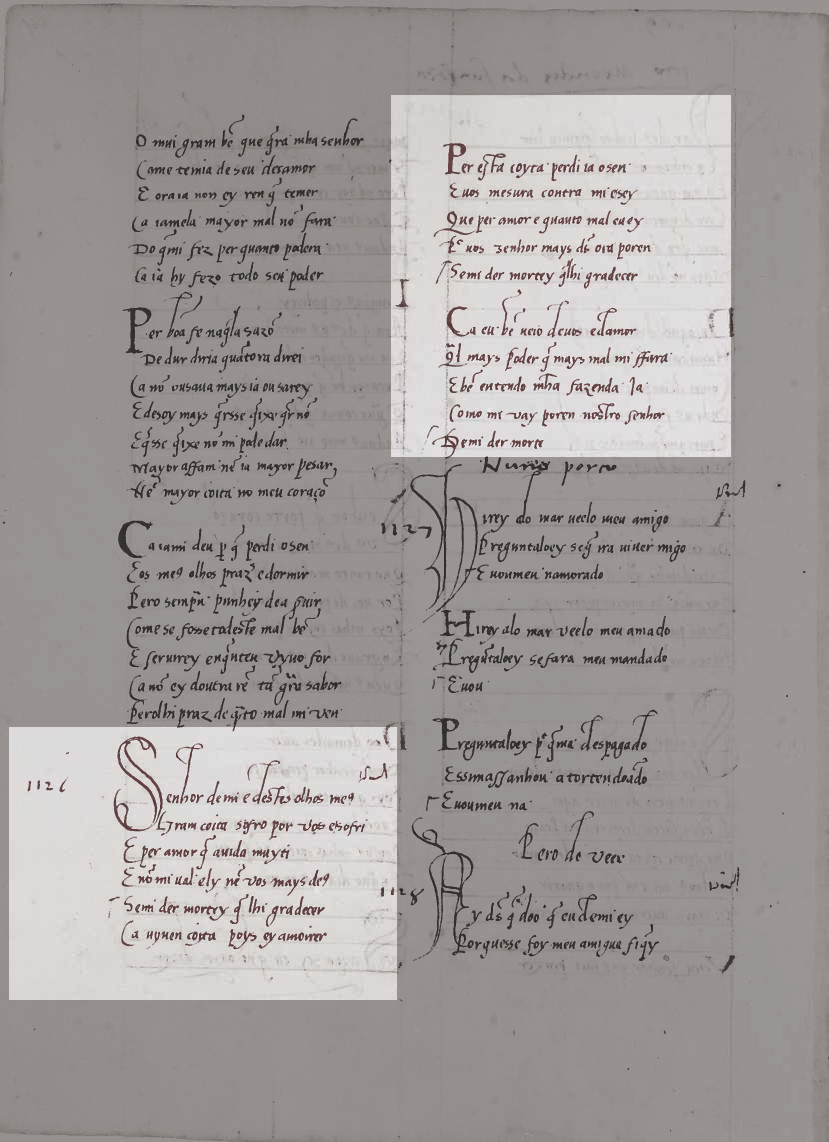 O mui gram bē que g̃ra mha senhor
Come temia de seu desamor
E oraia non ey ren q̄ temer
Ca iamela mayor mal nō fara
Do q̄mi fez per quanto podera
Ca ia hy fezo todo seu poder
Per bōa fe naq̄la sazō
De dur diria quātora direi
Ca nō ousaua mays ia ousarey
E desoy mays q̄rsse q̄ixe q̄r nō
E q̄sse q̄ixe nō mi pode dar
Mayor affam nē ia mayor pesar
Nē mayor coita no meu coraçō
Ca iami deu p̄ q̄ perdi o sen
Eos meꝯ olhos praz̄ e dormir
Pero semp̄ punhey de a s̄uir
Come se fosse todeste mal bē
E seruirey enq̄nteu vyuo for
Ca nō ey doutra rē tā grā sabor
Perolhi praz de q̄to mal mi ven
1126
Senhor de mi e destꝯ olhos meꝯ
Gram coita sofro por vos e sofri
E per amor q̄ auido muyti
E nō mi ual ely nē vos mays deꝯ
Semi der mortey q̄ lhi gradecer
Ca uyuen coita poys ey amoirer
Per esta coyta perdi ia o sen
E uos mesura contra mi e sey
Que per amor e quanto mal eu ey
Pē uos senhor mays ds̄ oia poren
Semi der mortey q̄lhi gradecer
Ca eu bē ueio de uos e damor
Q̄l mays poder q̄ mays mal mi ffara
E bē entendo mha fazenda Ja
Como mi vay poren nostro senhor
Semi der morte
Nuno porco
1127
Irey alo mar ueelo meu amigo
Preguntaloey seq̄rra uiuer migo
E uoumeu namorado
Hirey alo mar veelo meu amado
Preguntaloey se fara meu mandado
E uou
Preguntaloey pē q̄ma despagado
Essimassanhou a torten doado
E uoumeu na
Pero de veer
1128
Ay ds̄ q̄ doo q̄ eu de mi ey
Porquesse foy meu amigua fiq̄y